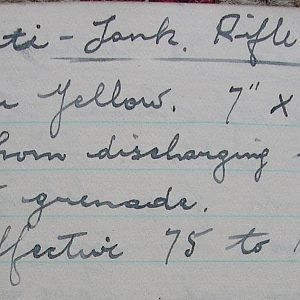 ti - Tank. Rifle
Yellow. 7" x
discharging
grenade.
ffective 75 to